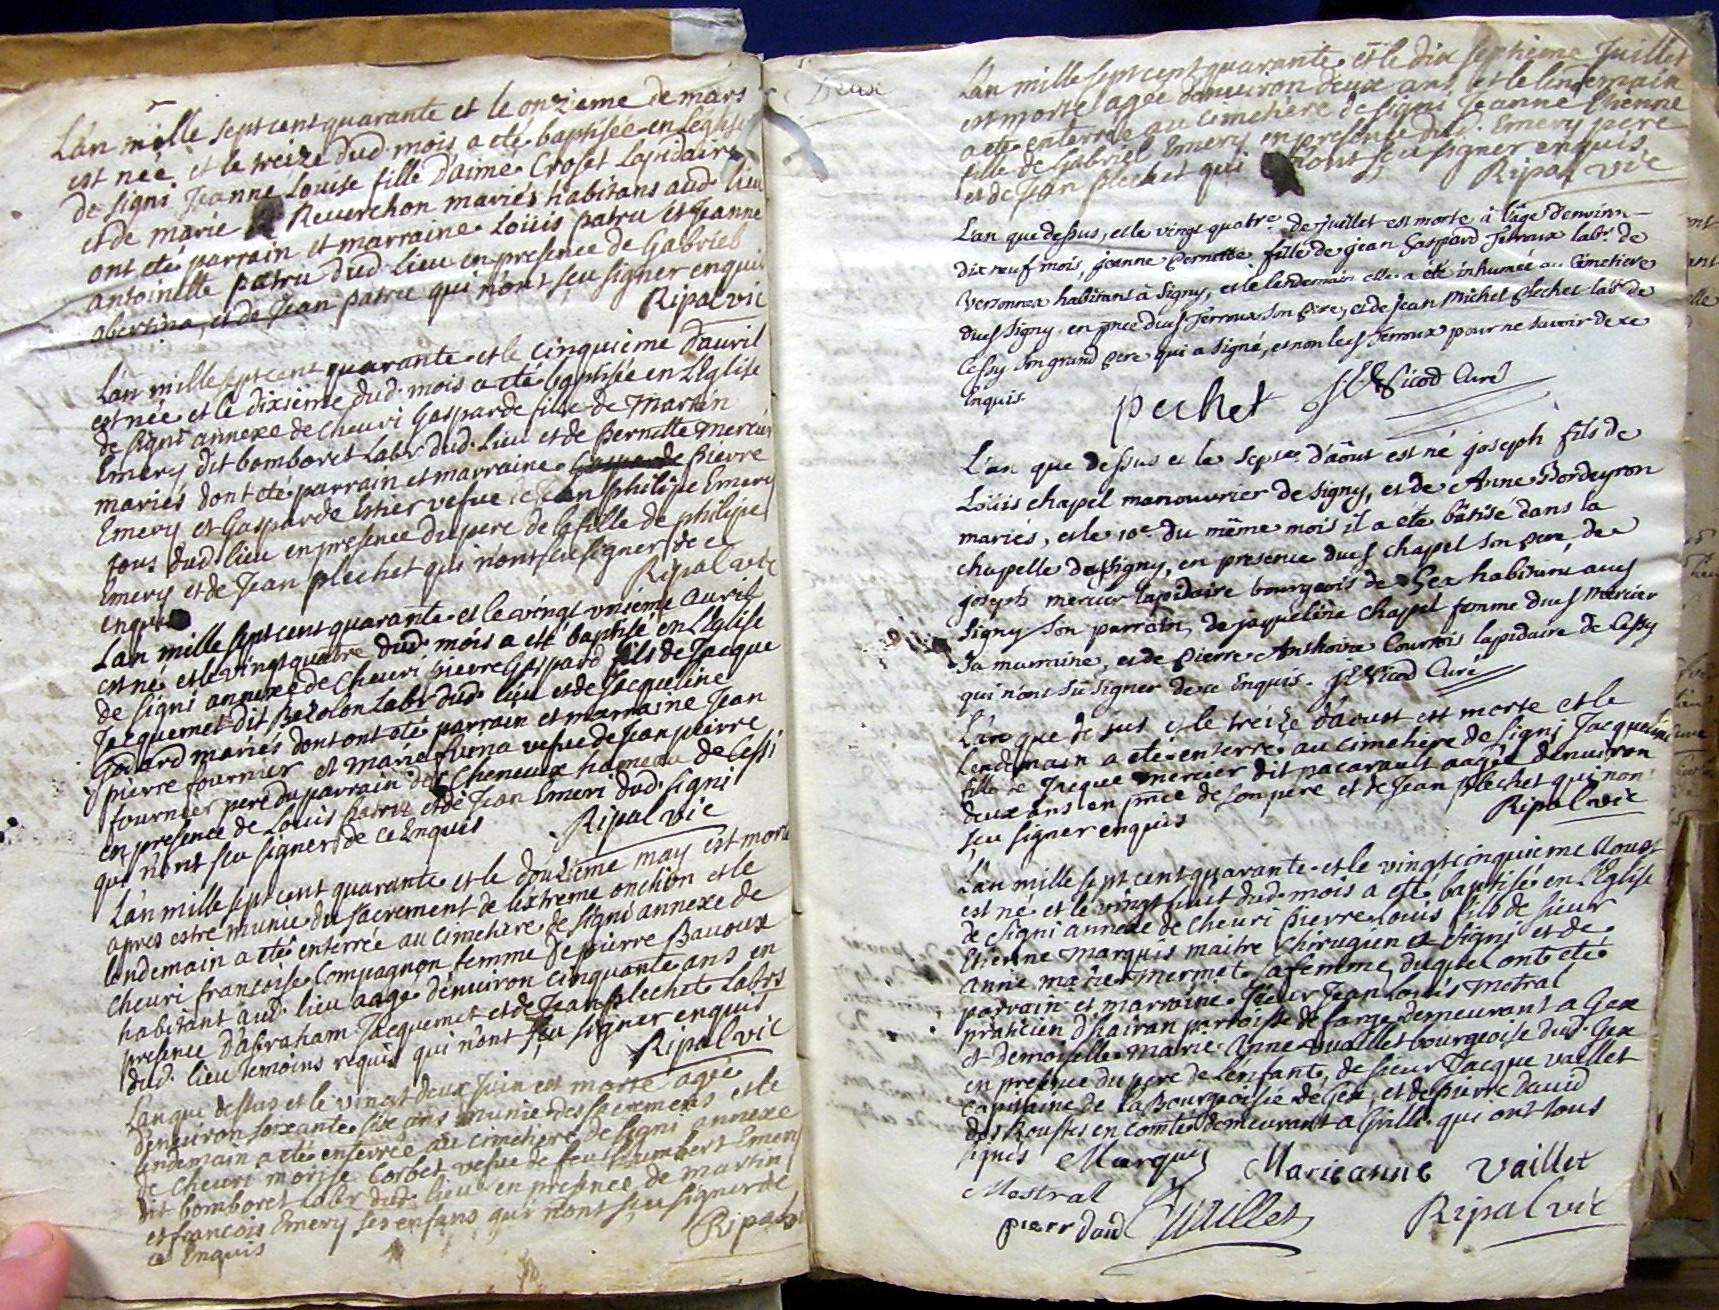 L'an mille sept cent quarante et le onzieme de mars
est néé et le treize dud. mois a eté baptisée en L'eglise
de signi Jeanne Louise fille D'aimé Croset Lapidaire
et de marie Reuerchon mariés habitans aud. lieu
ont eté parrain et marraine Loüis patru et Jeanne
antoinette patru dud lieu en presence de Gabriel
abertina, et de Jean patru qui n'ont sçu signer enquis
Ripal vic
L'an mille sept cent quarante et le cinquieme D'auril
est née et le dixiéme dud. mois a eté baptisée en L'Eglise
de signi annexe de cheuri Gasparde fille de Martin
Emery dit bomboret Labr dud. lieu et de pernette mercier
mariés dont eté parrain et marraine Pierre
Emery et Gasparde Estier vefue de Jean philipe Emery
tous dud. lieu en presence du pere de la fille de philipe
Emery et de Jean plechet qui n'ont sçu signer de ce
enquis Ripal vic
L'an mille sept cent quarante et le vingt unieme auril
est né et le vingt quatre dud. mois a eté baptisé en L'Eglise
de signi annexe de cheuri pierre Gaspard fils de Jacque
Jacquemet dit Bezolon Labr dud. lieu et de Jacqueline
Godard mariés dont ont eté parrain et marraine Jean
pierre fournier et marie furna vefue de Jean pierre
fournier pere du parrain des Cheneuux hameau de Cessi
en presence de Louis patru et de Jean Emeri dud. signi
qui n'ont sçu signer de ce Enquis Ripal vic
L'an mille sept cent quarante et le douzieme may est morte
apres estre munie du sacrement de l'extreme onction et le
lendemain a eté enterrée au cimetiere de signi annexe de
cheuri françoise Compagnon femme de pierre Bauoux
habitant aud. lieu aagé d'enuiron cinquante ans en
presence d'abraham Jacquemet et de Jean plechet Labrs
dud. lieu temoins requis qui n'ont sçu signer enquis
Ripal vic
L'an que dessus et le vingt deux Juin est morte agée
d'enuiron soixante six ans munie des sacremens et le
lendemain a eté enterrée au cimetiere de signi annexe
de cheuri morise Corbet vefue de feu humbert Emery
dit bomboret Labr dud. lieu en presence de martin
et françois Emery ses enfans qui n'ont sçu signer de
ce Enquis Ripal vic
Deux
L'an mille sept cent quarante et le dix septieme Juillet
est morte agée d'enuiron deux ans et le lendemain
a eté enterrée au cimetiere de signi Jeanne Etienne
fille de Gabriel Emery en presence dud. Emery pere
et de Jean plechet qui n'ont sçu signer enquis
Ripal vic
L'an que dessus, et le vingt quatre de juillet est morte à l'âge d'environ
dix neuf mois, jeanne Pernette fille de jean Gaspard Ferroux labr. de
Versonnex habitant à Signy, et le lendemain elle a été inhumée au Cimetiere
dud Signy en pnce dud Ferroux son Pere, et de jean Michel Plechet labr de
Cessy son grand pere qui a signé, et non led Ferroux pour ne savoir de ce
Enquis.
pechet Nicod Curé
L'an que dessus et le septe. d'aôut est né joseph fils de
Loüis chapel manouvrier de Signy, et de Anne Bordeyron
mariés, et le 10e. du même mois il a eté bâtisé dans la
chapelle de Signy, en presence dud chapel son pere, de
joseph mercier lapidaire bourgeois de Gex habitant aud
Signy son parrain, de jaqueline chapel femme dud mercier
sa marraine, et de Pierre Anthoine Courtois lapidaire de Cessy
qui n'ont sû signer de ce Enquis. Nicod Curé
L'an que desus et le treize d'aoust est morte et le
lendemain a eté enterre au cimetiere de signi Jacqueline
fille de Jacque mercier dit pacaraut aagée d'enuiron
deux ans en pnce de son pere et de Jean plechet qui n'on
sçu signer enquis Ripal vic
L'an mille sept cent quarante et le vingt cinquieme aoust
est né et le vingt huit dud. mois a eté baptisé en L'Eglise
de signi annexe de cheuri pierre Louis fils de sieur
Etienne marquis maitre chirugien a signi et de
anne marie mermet sa femme, duquel ont eté
parrain et marraine sieur Jean Louis metral
praticien d'hairan parroisse de farge demeurant a Gex
et demoiselle marie anne vuaillet bourgeoise dud. Gex
en presence du pere de L'enfant, de sieur Jacque vaillet
capitaine de la Bourgeoisie de Gex, et de pierre dauid
des Rousses en comté demeurant a qui ont tous
signés Marquis Marieanne Vaillet
Mestral
pierr david Vuaillet Ripal vic